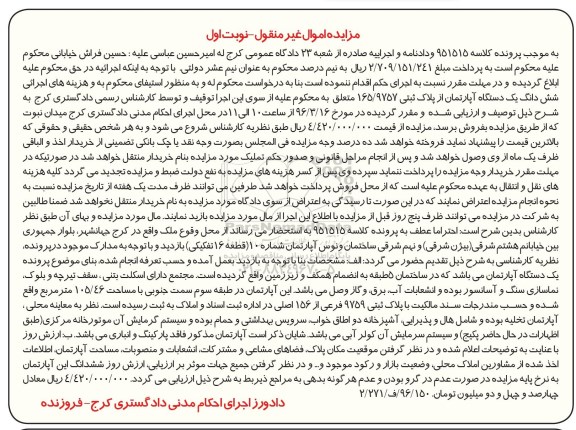 مزایده اموال غیر منقول - نوبت اول
به موجب پرونده کلاسه 951515 ودادنامه و اجراییه صادره از شعبه 23 دادگاه عمومی کرج له امیرحسین عباسی علیه : حسین فراش خیابانی محکوم
علیه محکوم است به پرداخت مبلغ 2/709/151/241 ریال به نیم درصد محکوم به‌عنوان نیم عشر دولتی. با توجه به اینکه اجرائیه در حق محکوم علیه
ابلاغ گردیده و در مهلت مقرر نسبت به اجرای حکم اقدام ننموده است بنا به درخواست محکوم له و به منظور استیفای محکوم به و هزینه های اجرائی
شش دانگ یک دستگاه آپارتمان از پلاک ثبتی 165/9757 متعلق به محکوم علیه از سوی این اجرا توقیف و توسط کارشناس رسمی دادگستری کرج به
شرح ذیل توصیف و ارزیابی شده و مقرر گردیده در مورخ 96/3/16 از ساعت 10 الی 11 در محل اجرای احکام مدنی دادگستری کرج میدان نبوت
که از طریق مزایده بفروش برسد. مزایده از قیمت 4/420/000/000 ریال طبق نظریه کارشناس شروع می شود و به هر شخص حقیقی و حقوقی که
بالاترین قیمت را پیشنهاد نماید فروخته خواهد شد ده درصد وجه مزایده فی المجلس بصورت وجه نقد یا چک بانکی تضمینی از خریدار اخذ و الباقی
ظرف یک ماه از وی وصول خواهد شد و پس از انجام مراحل قانونی و صدور حکم تملیک مورد مزایده بنام خریدار منتقل خواهد شد در صورتیکه در
مهلت مقرر خریدار وجه مزایده را پرداخت ننماید سپرده وی پس از کسر هزینه های مزایده به نفع دولت ضبط و مزایده تجدید می گردد کلیه هزینه
های نقل و انتقال به عهده محکوم علیه است که از محل فروش پرداخت خواهد شد طرفین می توانند ظرف مدت یک هفته از تاریخ مزایده نسبت به
نحوه انجام مزایده اعتراض نمایند که در این صورت تا رسیدگی به اعتراض از سوی دادگاه مورد مزایده به نام خریدار منتقل نخواهد شد ضمنا طالبین
به شرکت در مزایده می توانند ظرف پنج روز قبل از مزایده با اطلاع این اجرا از مال مورد مزایده بازدید نمایند. مال مورد مزایده و بهای آن طبق نظر
کارشناس بدین شرح است: احتراما عطف به پرونده کلاسه 951515 به استحضار می رساند: از محل وقوع ملک واقع در کرج جهانشهر، بلوار جمهوری
بین خیابانم هشتم شرقی(بیژن شرقی) و نهم شرقی ساختمان ونوس آپارتمان شماره 10(قطعه 16 تفکیکی) بازدید و با توجه به مدارک موجود در پرونده،
نظریه کارشناسی به شرح ذیل تقدیم حضور می گردد: الف: مشخصات بنا با توجه به بازدید بعمل آمده و حسب تعرفه انجام شده، بنای موضوع پرونده
یک دستگاه آپارتمان می باشد که در ساختمان 5طبقه به انضمام همکف و زیرزمین واقع گردیده است. مجتمع دارای اسکلت بتنی، سقف تیرچه و بلوک،
نماسازی سنگ و آسانسور بوده و انشعابات آب، برق، و گاز وصل می باشد. این آپارتمان در طبقه سوم سمت جنوبی با مساحت 105/46 متر مربع واقع
شده و حسب مندرجات سند مالکیت با پلاک ثبتی 9759 فرعی از 156 اصلی در اداره ثبت اسناد و املاک به ثبت رسیده است. نظر به معاینه محلی،
آپارتمان تخلیه بوده و شامل هال و پذیرایی، آشپزخانه دو اطاق خواب، سرویس بهداشتی و حمام بوده و سیستم گرمایش آن موتورخانه مرکزی(طبق
اظهارات در حال حاضر پکیج) و سیستم سرمایش آن کولر آبی می باشد. شایان ذکر است آپارتمان مذکور فاقد پارکینگ و انباری می باشد. ب: ارزش روز
با عنایت به توضیحات اعلام شده و در نظر گرفتن موقعیت مکان پلاک، فضاهای مشاعی و مشترکات، انشعابات و منصوبات، مساحت آپارتمان، اطلاعات
اخذ شده از مشاورین املاک محلی، وضعیت بازار و رکود موجود و.. و در نظر گرفتن جمیع جهات موثر بر ارزیابی، ارزش روز ششدانگ این آپارتمان
به نرخ پایه مزایده در صورت عدم در گرو بودن و عدم هرگونه بدهی به مراجع ذیربط به شرح ذیل ارزیابی می گردد. 4/420/000/000 ریال معادل
چهارصد و چهل و دو میلیون تومان. 96/150/ف 2/271/
دادورز اجرای احکام مدنی دادگستری کرج - فروزنده